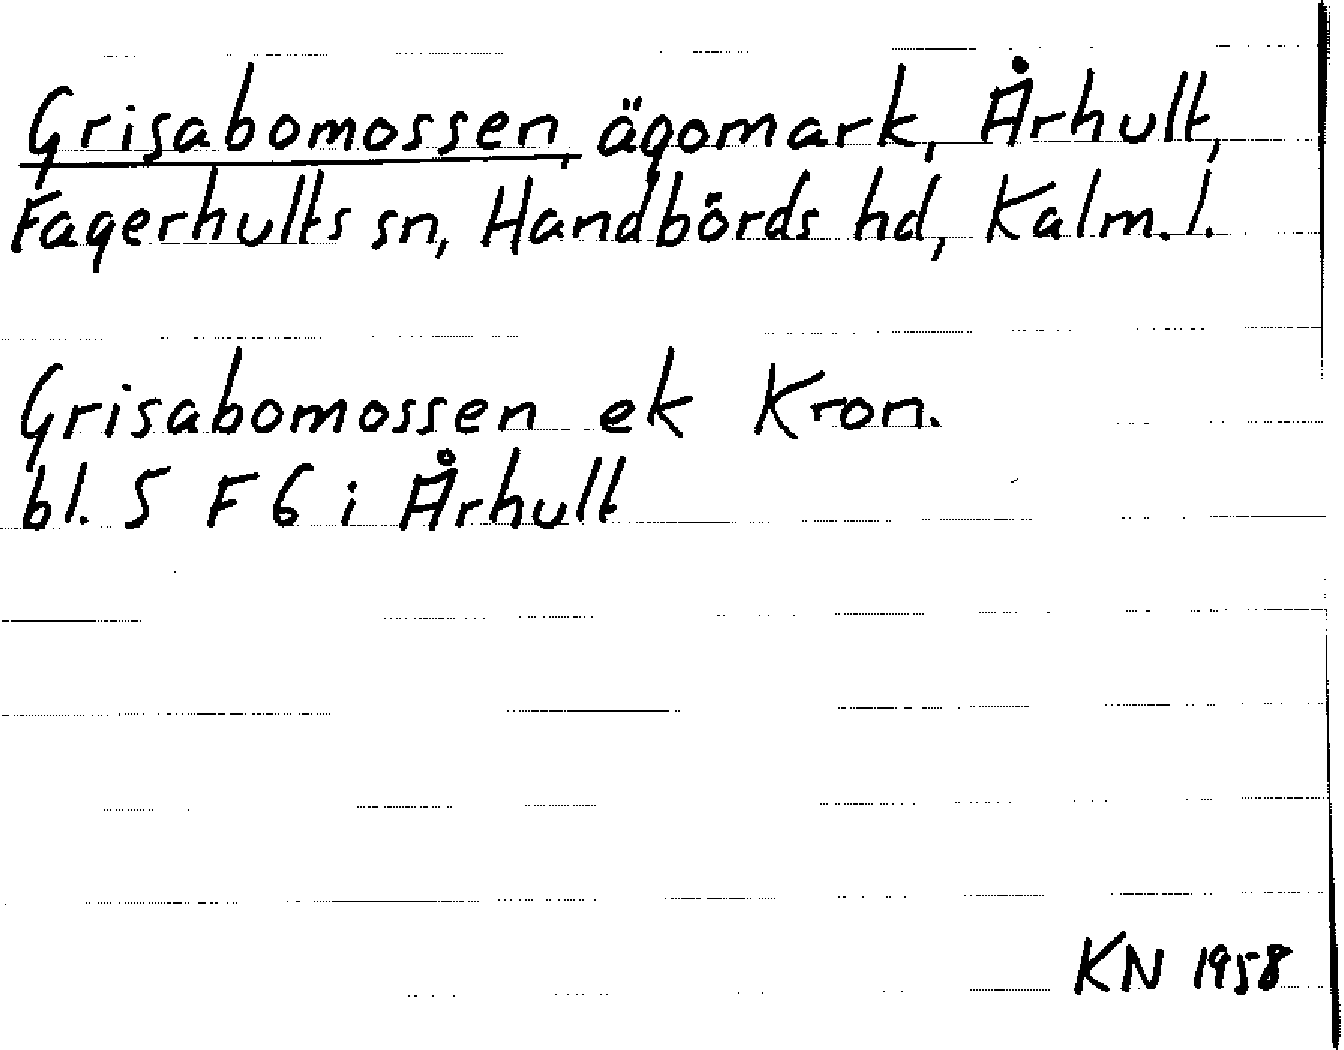 Grisabomossen, ägomark, Århult,
Fagerhults sn, Handbörds hd, Kalm. l.
Grisabomossen ek Kron.
bl. 5 F 6 i Århult
KN 1958